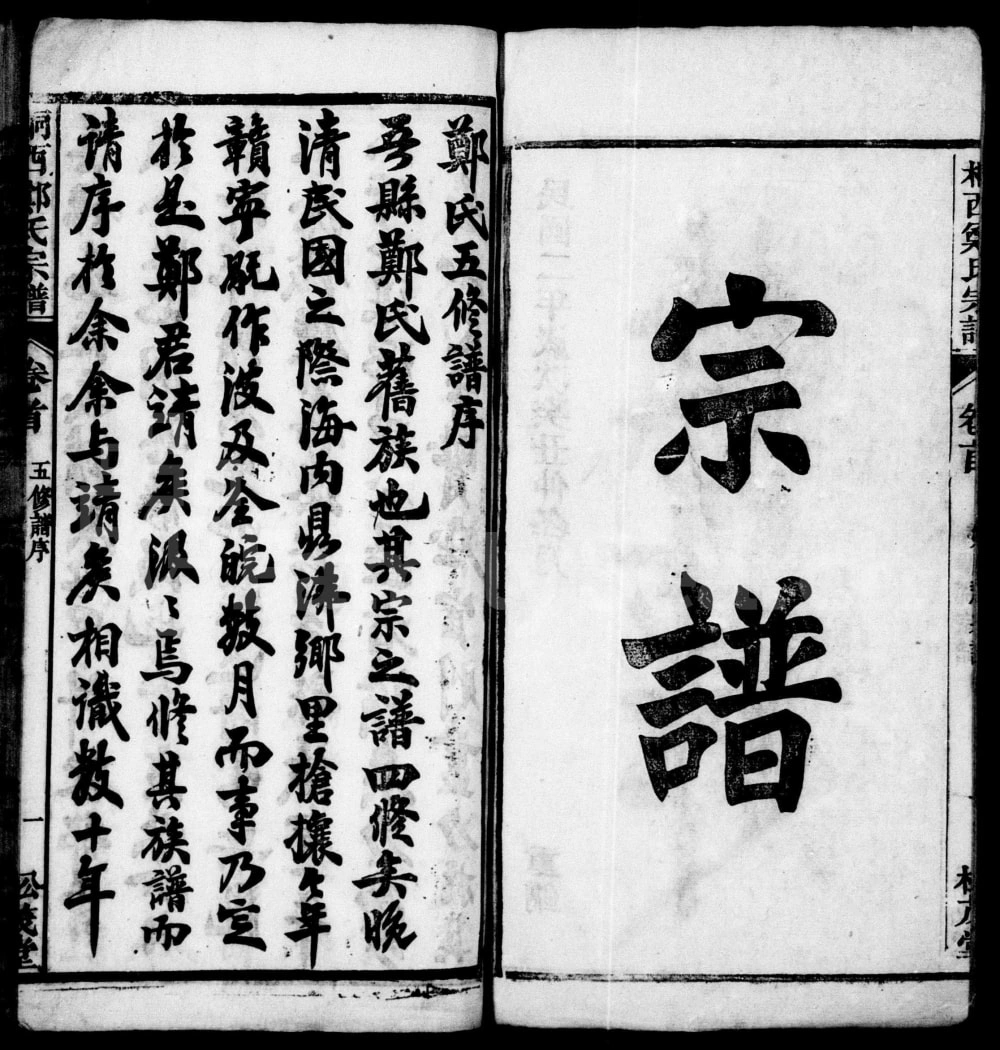 宗譜
鄭氏五修譜序
吾縣鄭氏舊族也其宗之譜四修矣晚
清民國之際海内鼎沸鄉里搶攘年
贛寧亂作波及全皖數月而事乃定
於是鄭君靖矣汲〻焉修其族譜而
請序於余余与靖矣相識數十年
西鄭氏宗譜
卷首
五修譜序
一